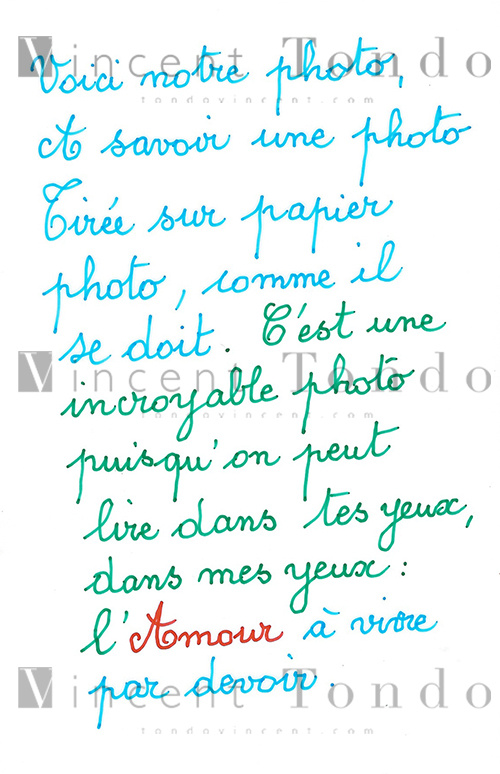 Vincent Tondo
Voici notre photo,
tondovincent.com
A savoir une photo
Tirée sur papier
photo, comme il
se doit. C'est une
Vincent Tondo
incroyable photo
tondovincent.com
puisqu'on peut
lire dans tes yeux,
dans mes yeux :
l'Amour à vivre
Vincent Tondo
par devoir.
tondovincent.com